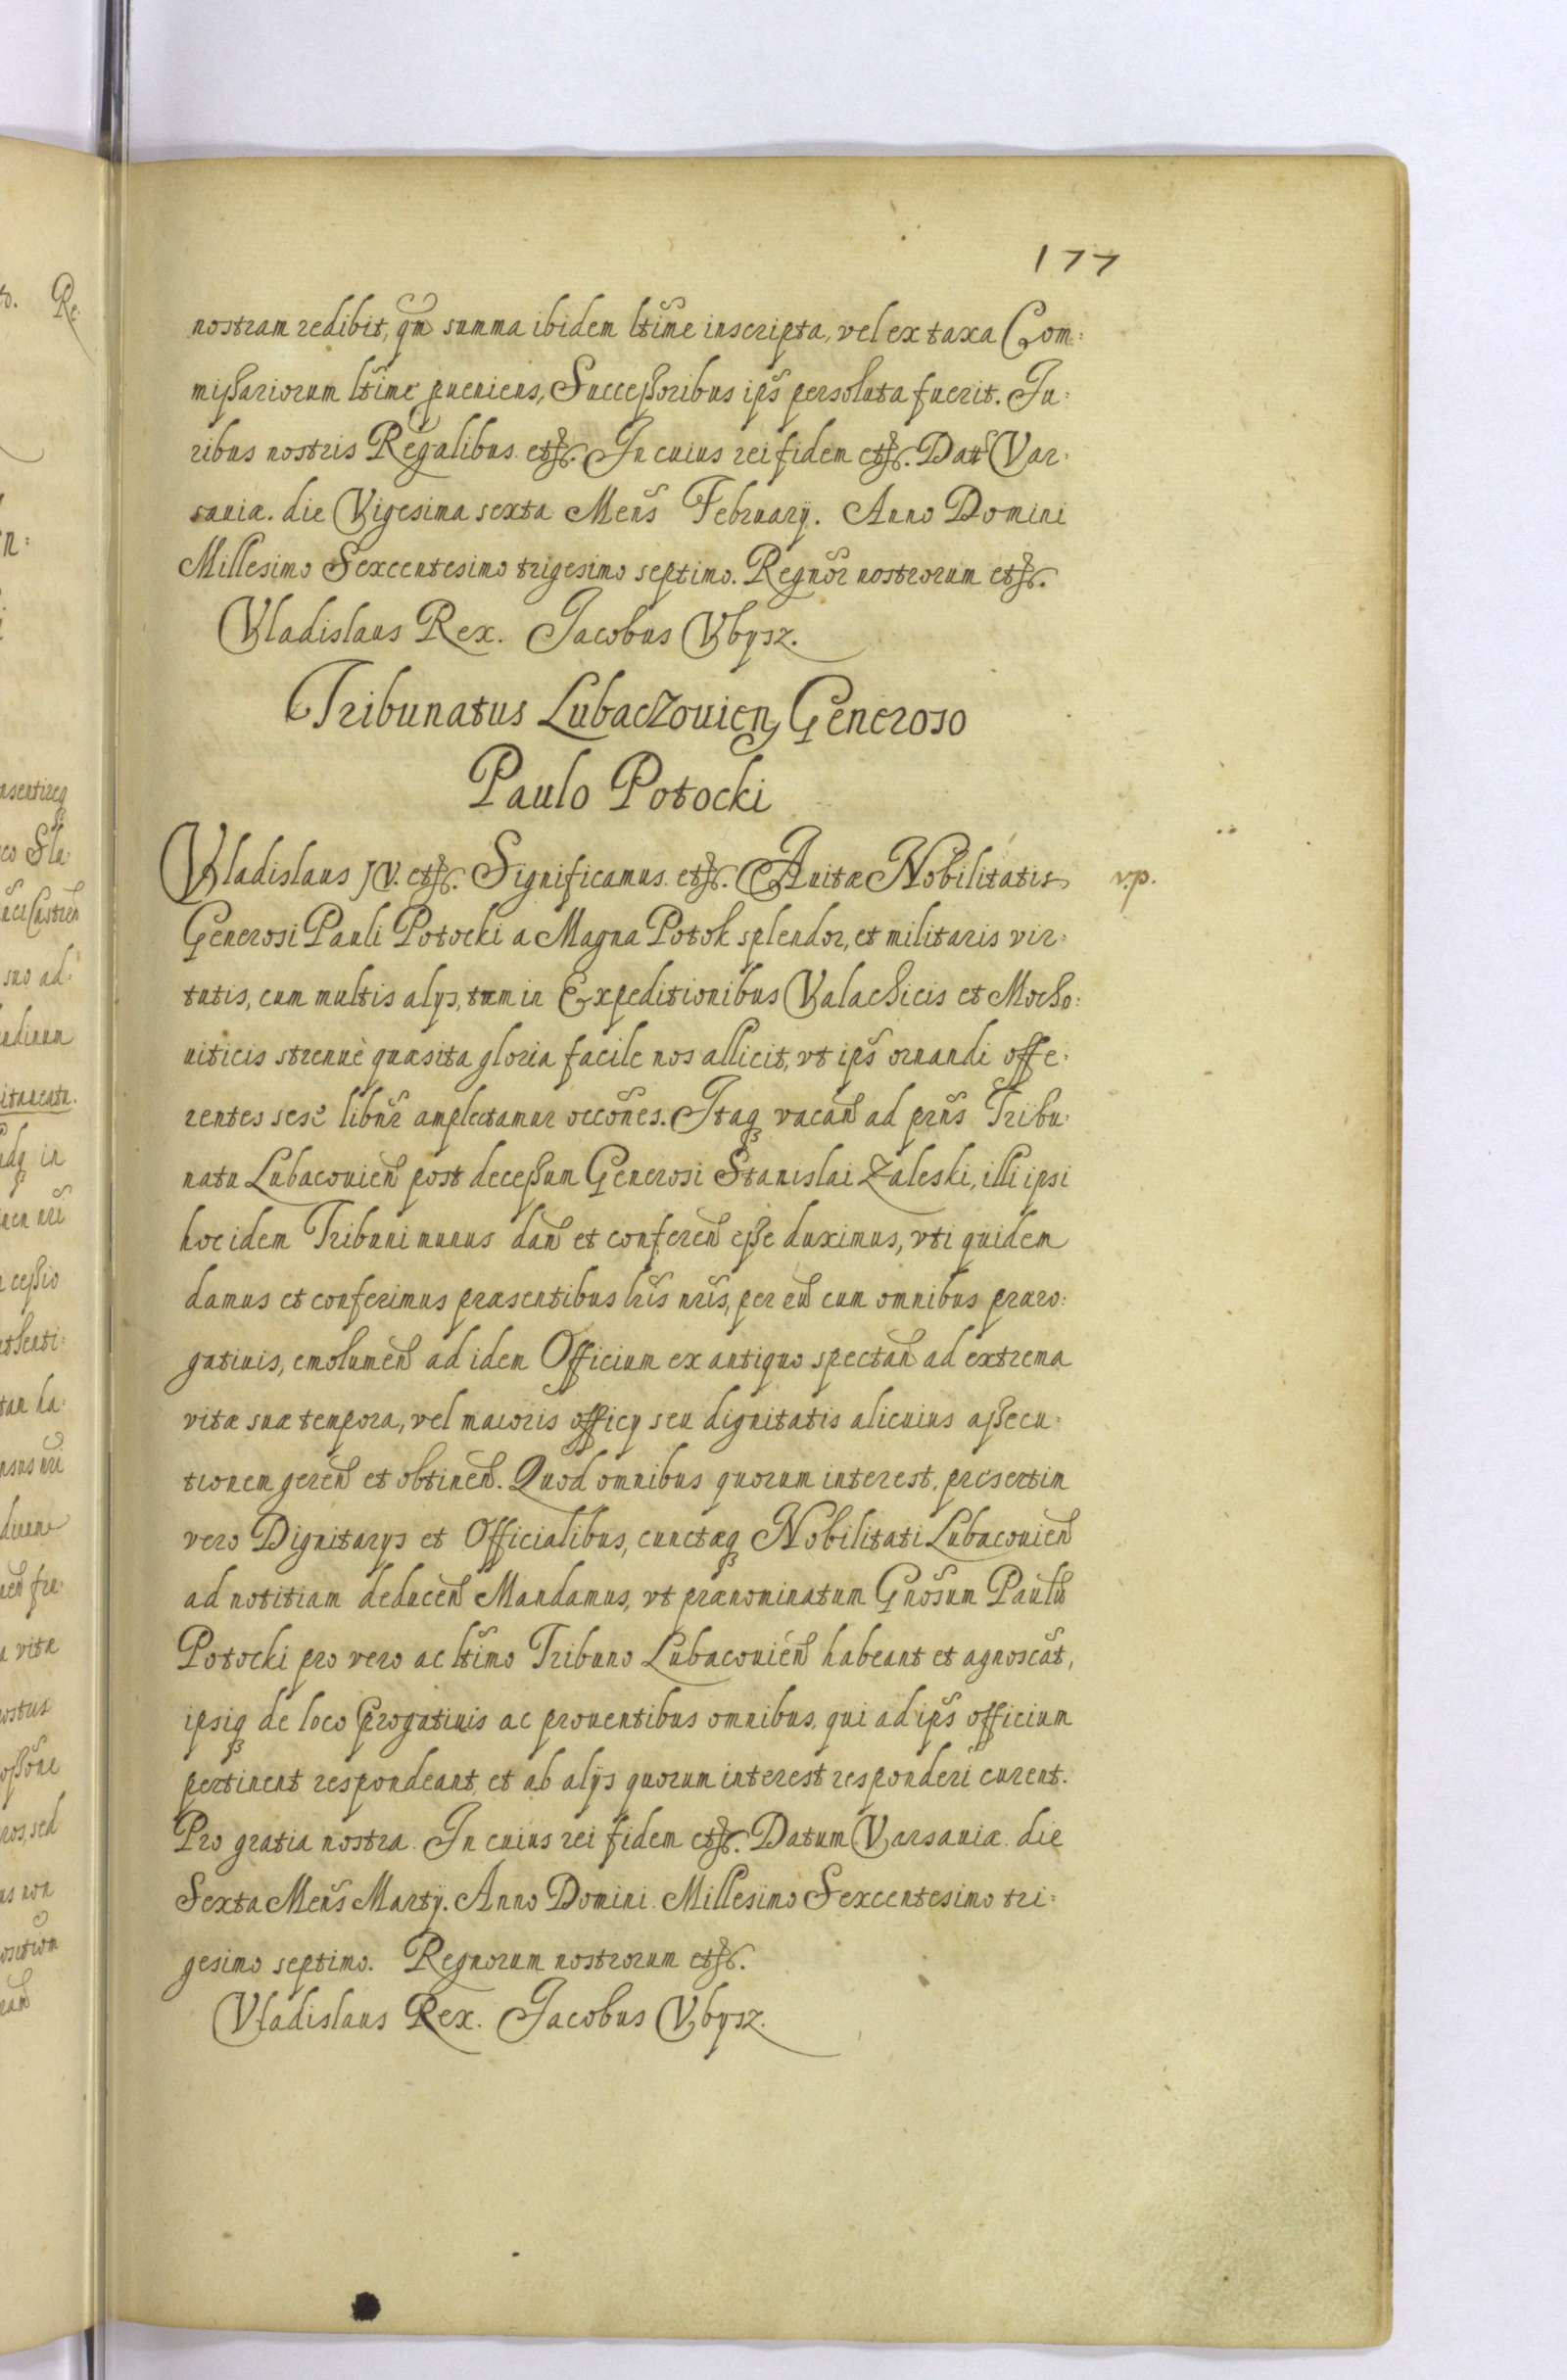 177
nostram redibit, qm̃ summa ibidem ltĩme inscripta, vel ex taxa Com:
mißariorum ltĩme pueniens, Succeßoribus ips̃ persoluta fuerit. Iu:
ribus nostris Regalibus etc. In cuius rei fidem etc. Datt Var:
sauiæ. die Vigesima sexta Meñs Februarÿ. Anno Domini
Millesimo Sexcentesimo trigesimo septimo. Regnor̃ nostrorum etc.
Vladislaus Rex. Jacobus Vbysz.
Tribunatus Lubaczouien, Generoso
Paulo Potocki
Vladislaus IV. etc. Significamus etc. Auitæ Nobilitatis v.p.
Generosi Pauli Potocki a Magna Potok splendor, et militaris vir:
tutis, cum multis alÿs, tum in Expeditionibus Valachicis et Moscho:
uiticis strenuè quæsita gloria facile nos allicit, vt ips̃ ornandi offe:
rentes sese libñr amplectamur occões. Itaq vacañ ad prñs Tribu:
natu Lubacouieñ post deceßum Generosi Stanislai Zaleski, illi ipsi
hoc idem Tribuni munus dañ et confereñ eße duximus, vti quidem
damus et conferimus præsentibus lr̃is nr̃is, per eũ cum omnibus præro:
gatiuis, emolumeñ ad idem Officium ex antiquo spectañ ad extrema
vitæ suæ tempora, vel maioris officÿ seu dignitatis alicuius aßecu:
tionem gereñ et obtineñ. Quod omnibus quorum interest, presertim
vero Dignitarÿs et Officialibus, cunctæq Nobilitati Lubacouieñ
ad notitiam deduceñ Mandamus, vt prænominatum Gnõsum Paulũ
Potocki pro vero ac ltĩmo Tribuno Lubacouieñ habeant et agnoscãt,
ipsiq de loco progatiuis ac prouentibus omnibus, qui ad ips̃ officium
pertinent respondeant et ab alÿs quorum interest responderi curent.
Pro gratia nostra. In cuius rei fidem etc. Datum Varsauiæ die
Sexta Meñs Martÿ. Anno Domini Millesimo Sexcentesimo tri:
gesimo septimo. Regnorum nostrorum etc.
Vladislaus Rex. Jacobus Vbysz.